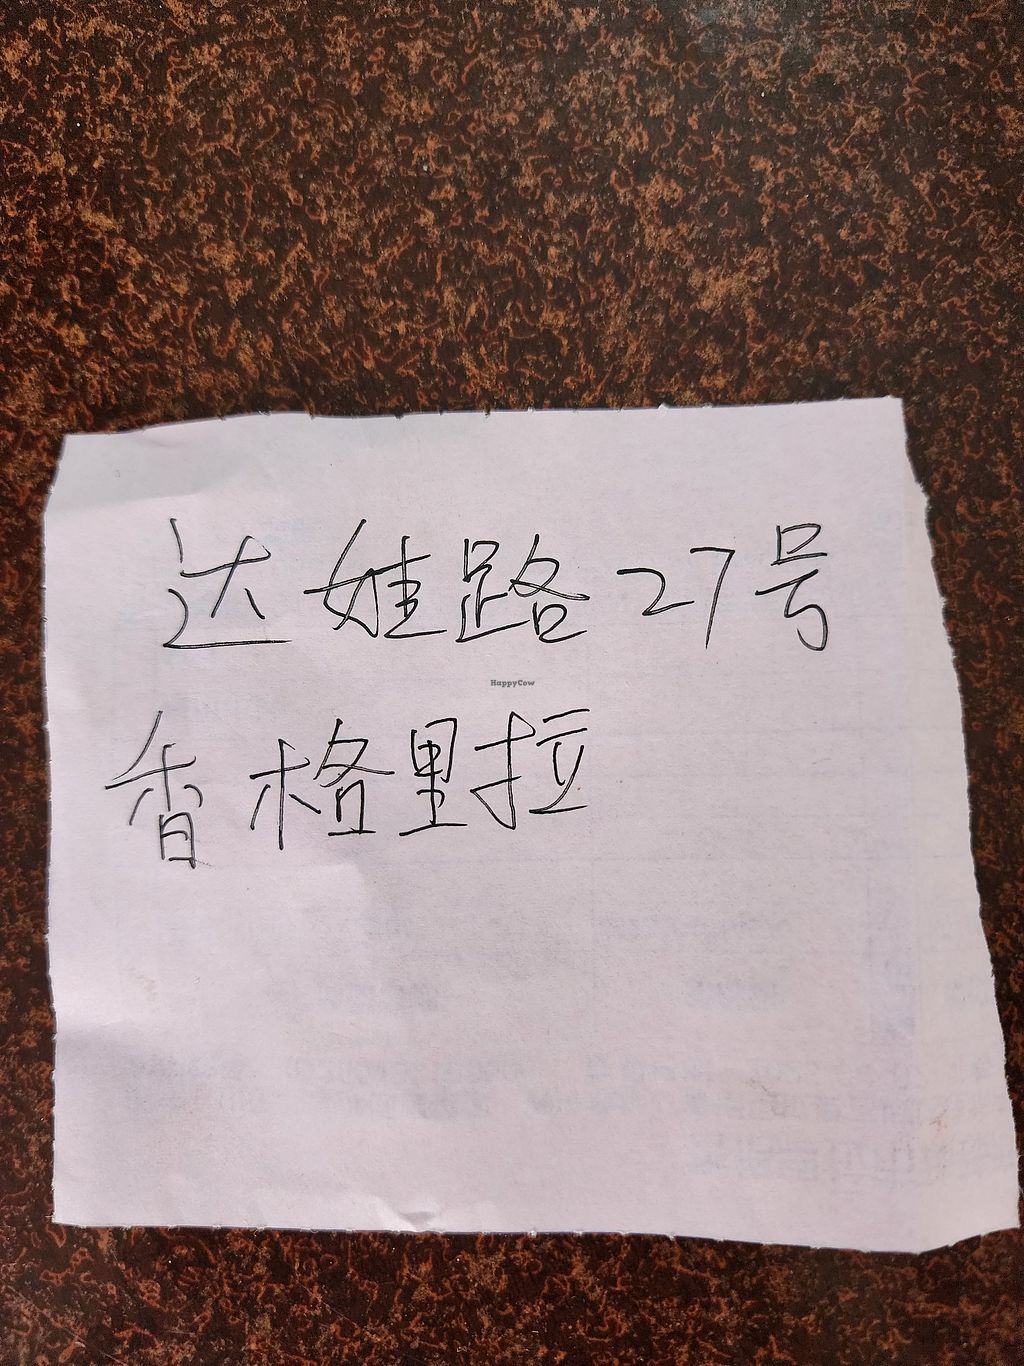 达娃路27号
HappyCow
香格里拉